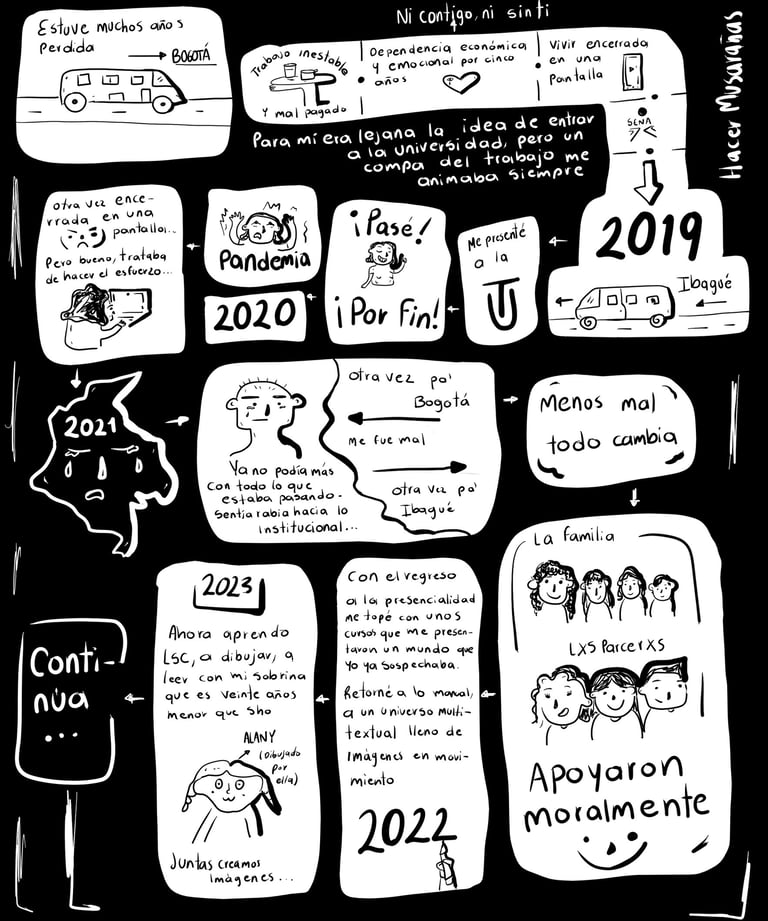 Ni contigo, ni sin ti
Hacer Musarañas
Estuve muchos años
perdida
BOGOTÁ
Trabajo inestable
Y mal pagado
Dependencia económica
y emocional por cinco
años
Vivir encerrada
en una
pantalla
SENA
Para mí era lejana la idea de entrar
a la universidad, pero un
compa del trabajo me
animaba siempre
2019
Ibagué
Me presenté
a la
UT
¡Pasé!
¡Por Fin!
Pandemia
2020
otra vez ence-
rrada en una
pantalla...
Pero bueno, trataba
de hacer el esfuerzo...
2021
Ya no podía más
con todo lo que
estaba pasando.
Sentía rabia hacia lo
institucional...
otra vez pa'
Bogotá
Me fue mal
otra vez pa'
Ibagué
Menos mal
todo cambia
La familia
LXS Parcerxs
Apoyaron
moralmente
Con el regreso
a la presencialidad
me topé con unos
cursos que me presen-
taron un mundo que
yo ya sospechaba.
Retorné a lo manual,
a un universo multi-
textual lleno de
imágenes en movi-
miento
2022
2023
Ahora aprendo
LSC, a dibujar, a
leer con mi sobrina
que es veinte años
menor que sho
ALANY
(Dibujado
por
ella)
Juntas creamos
imágenes...
Conti-
núa
...